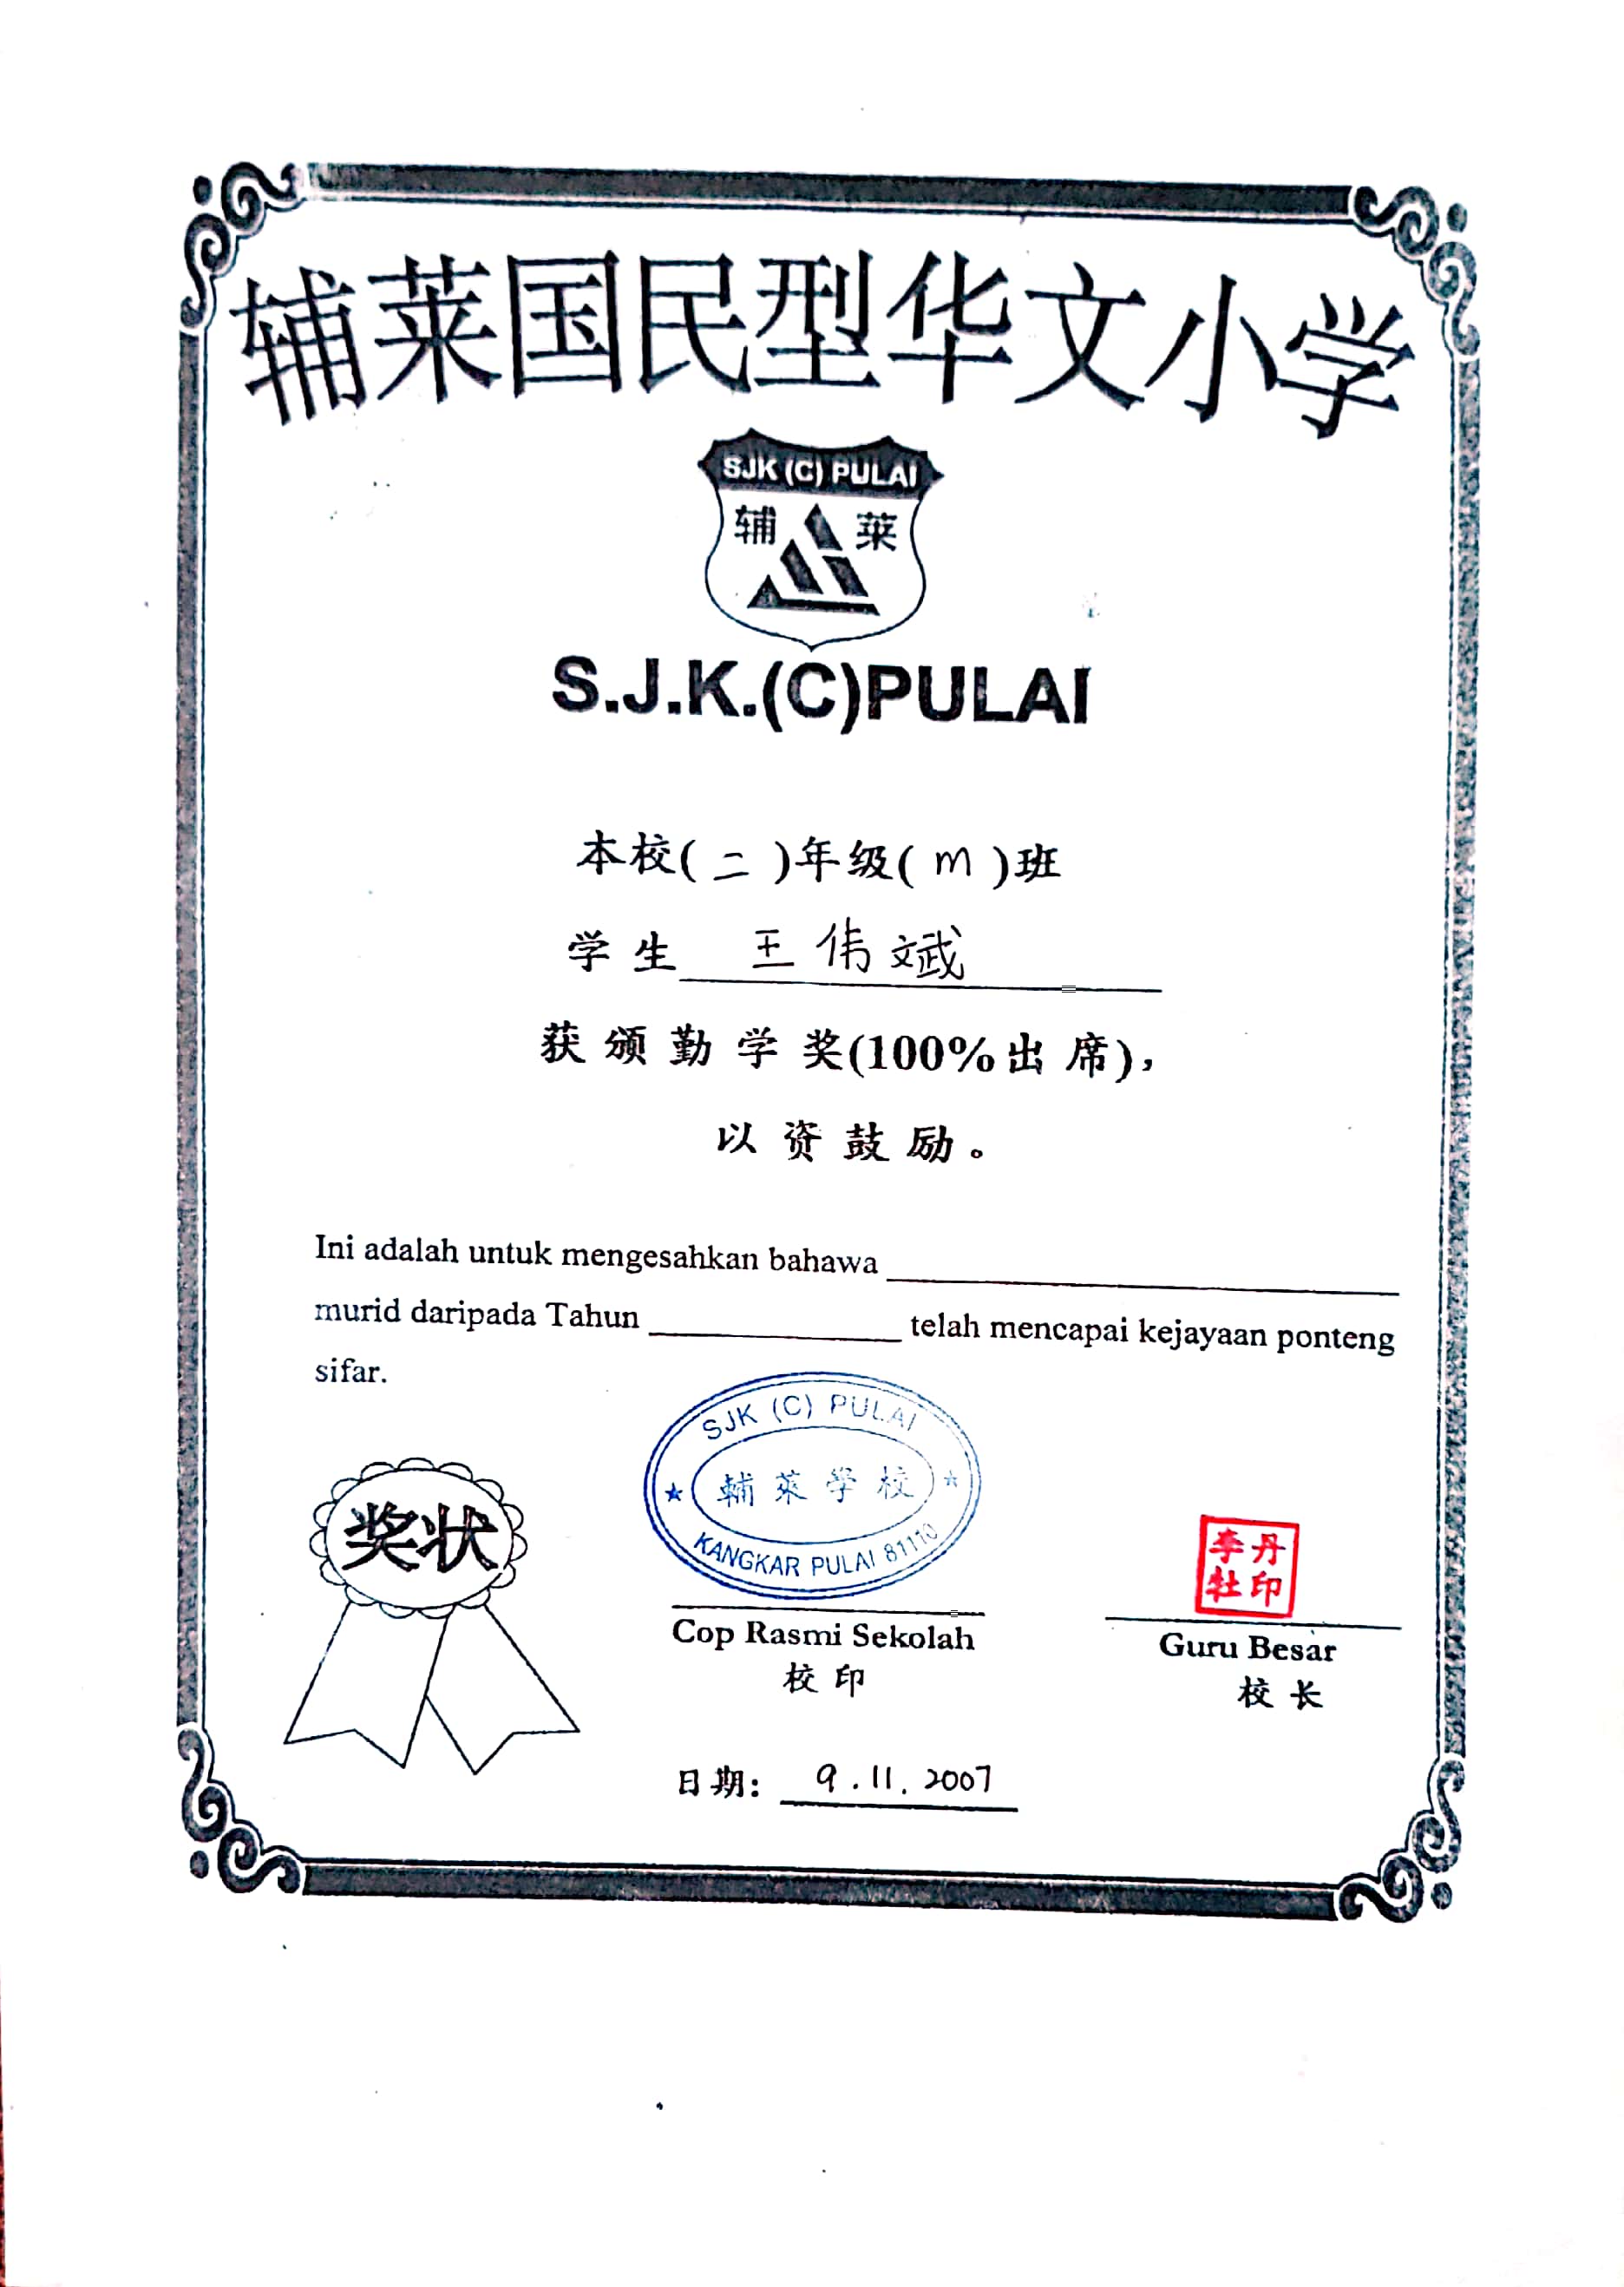 辅莱国民型华文小学
SJK (C) PULAI
辅 莱
S.J.K.(C)PULAI
本校( 二 )年级( m )班
学生 王伟斌
获颁勤学奖(100%出席),
以资鼓励。
Ini adalah untuk mengesahkan bahawa
murid daripada Tahun telah mencapai kejayaan ponteng
sifar.
奖状
SJK (C) PULAI
輔萊學校
KANGKAR PULAI 81110
李丹
牡印
Cop Rasmi Sekolah
校印
Guru Besar
校长
日期: 9.11.2007